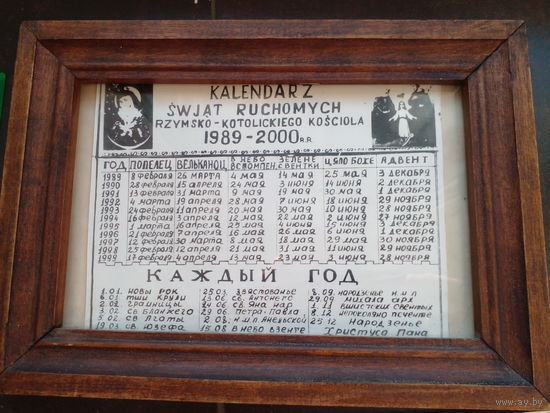 KALENDARZ
ŚWJĄT RUCHOMYCH
RZYMSKO-KOTOLICKIEGO KOŚCIOLA
1989-2000 R.R.
ГОД ПОПЕЛЕЦ ВЕЛЬКАНОЦ В НЕБО ВСТОМПЕН. ЗЕЛЕНЕ СВЕНТКИ ЦЯЛО БОЖЕ АДВЕНТ
1989 8 февраля 26 МАРТА 4 мая 14 мая 25 мая 3 декабря
1990 28 февраля 15 апреля 24 мая 3 июня 14 июня 2 декабря
1991 13 февраля 31 марта 9 мая 19 мая 30 мая 1 декабря
1992 4 марта 19 апреля 28 мая 7 июня 18 июня 29 ноября
1993 24 февраля 11 апреля 20 мая 30 мая 10 июня 28 ноября
1994 16 февраля 3 апреля 12 мая 22 мая 2 июня 27 ноября
1995 1 марта 16 апреля 25 мая 4 июня 15 июня 3 декабря
1996 21 февраля 7 апреля 16 мая 26 мая 6 июня 1 декабря
1997 12 февраля 30 марта 8 мая 18 мая 29 мая 30 ноября
1998 25 февраля 12 апреля 21 мая 31 мая 11 июня 29 ноября
1999 17 февраля 4 апреля 13 мая 23 мая 3 июня 28 ноября
КАЖДЫЙ ГОД
1.01 НОВЫ РОК 25.03. ЗВЯСТОВАНЬЕ 8.09. НАРОДЗЕНЬЕ Н.М.П
6.01 ТШИ КРУЛИ 13.06 СВ. АНТОНЕГО 29.09 МИХАЛА АРХ
2.02. ГРАМНИЦЫ 24.06 СВ. ЯНА 1.11 ВШИСТСКИХ СВЕНТЫХ
3.02 СВ БЛАЖЕГО 29.06 ПЕТРА-ПАВЛА 8.12 НЕПОКОЛЯНО ПОЧЕНТЕ
5.02 СВ. АГАТЫ 2.08. Н.М.П АНЕЛЬСКОЙ 25.12 НАРОДЗЕНЬЕ
19.03 СВ. ЮЗЕФА 15.08 В НЕБО ВЗЕНТЕ ХРИСТУСА ПАНА
www.ay.by